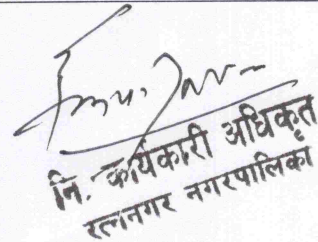 नि. कार्यकारी अधिकृत
रत्ननगर नगरपालिका